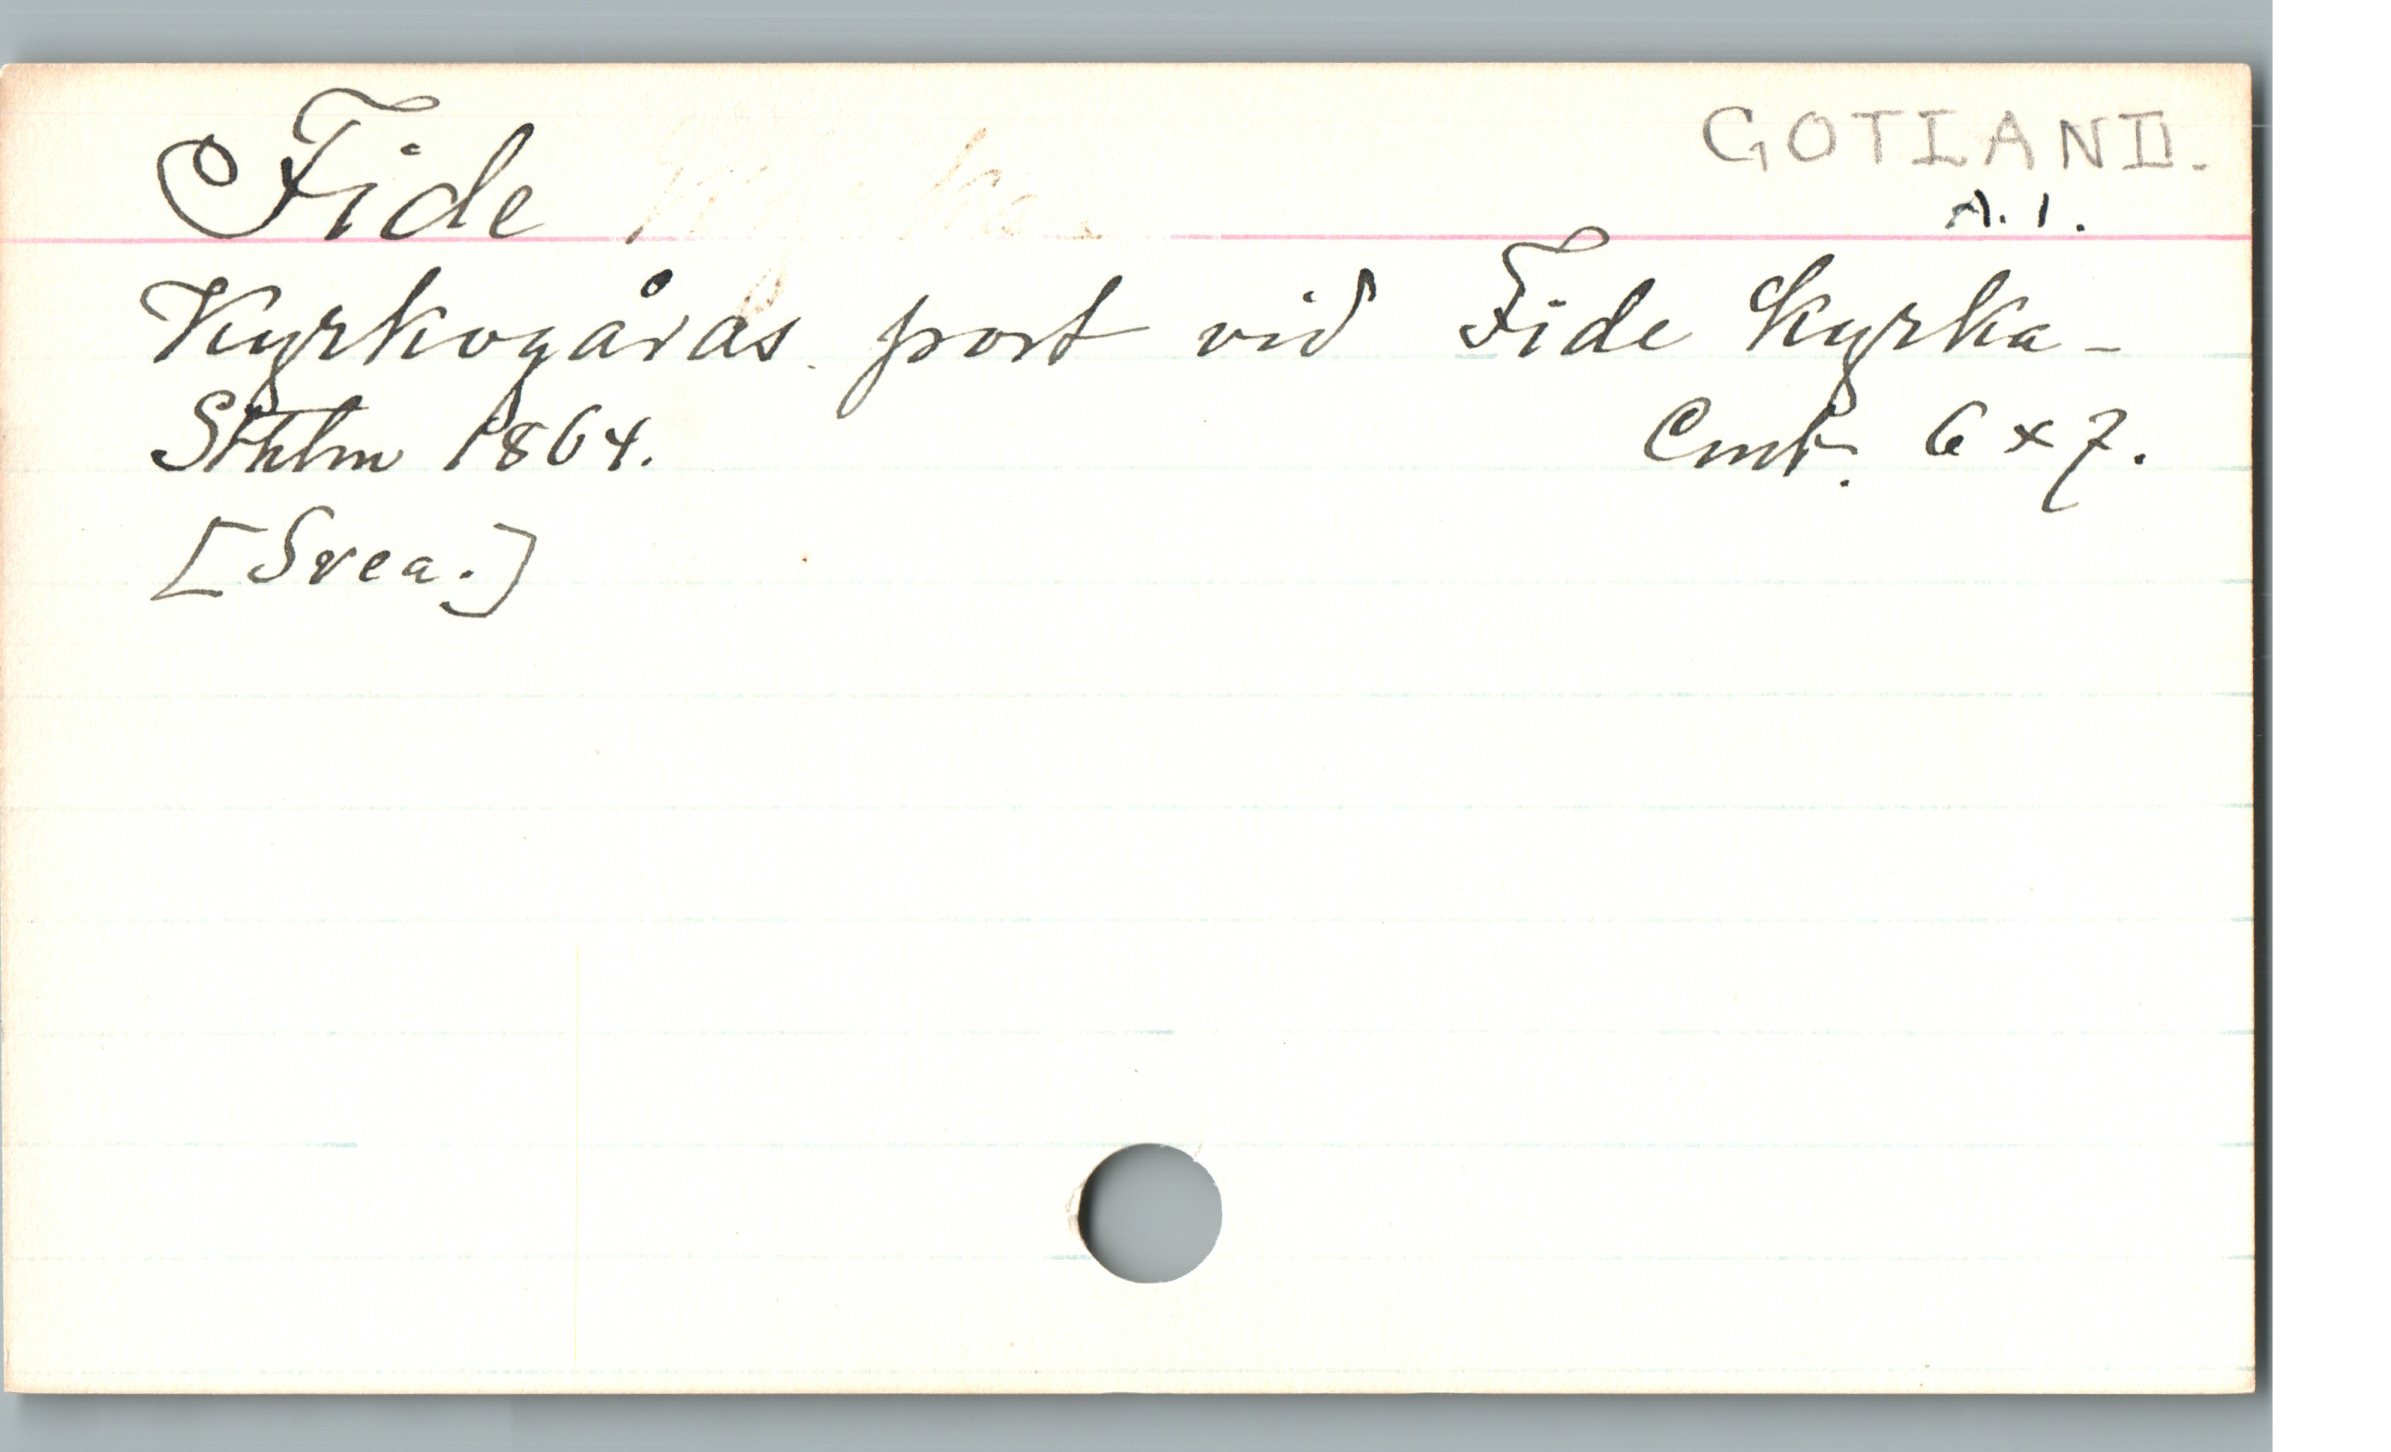 Fide GOTLAND.
A. 1.
Kyrkogårds port vid Fide kyrka -
Sthlm 1864. Cmt. 6 x 7.
[Svea.]